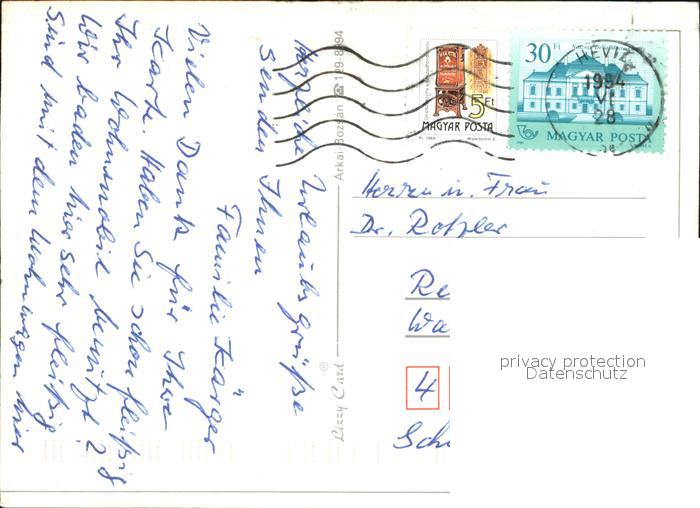 Herzliche Urlaubsgrüße
senden Ihnen
Familie Karger
Vielen Dank für Ihre
Karte. Haben Sie schon fleißig
Ihr Wohnmobil benützt?
Wir baden hier sehr fleißig
Sind mit dem Wohnwagen hier
Lizzy Card
Árkai-Bozdán ☎ 129-8894
5Ft
MAGYAR POSTA
30 Ft
MAGYAR POSTA
HÉVÍZ
1994
VI
28
Herren u. Frau
Dr. Rotzler
Re
Wa
4
Sch
privacy protection
Datenschutz